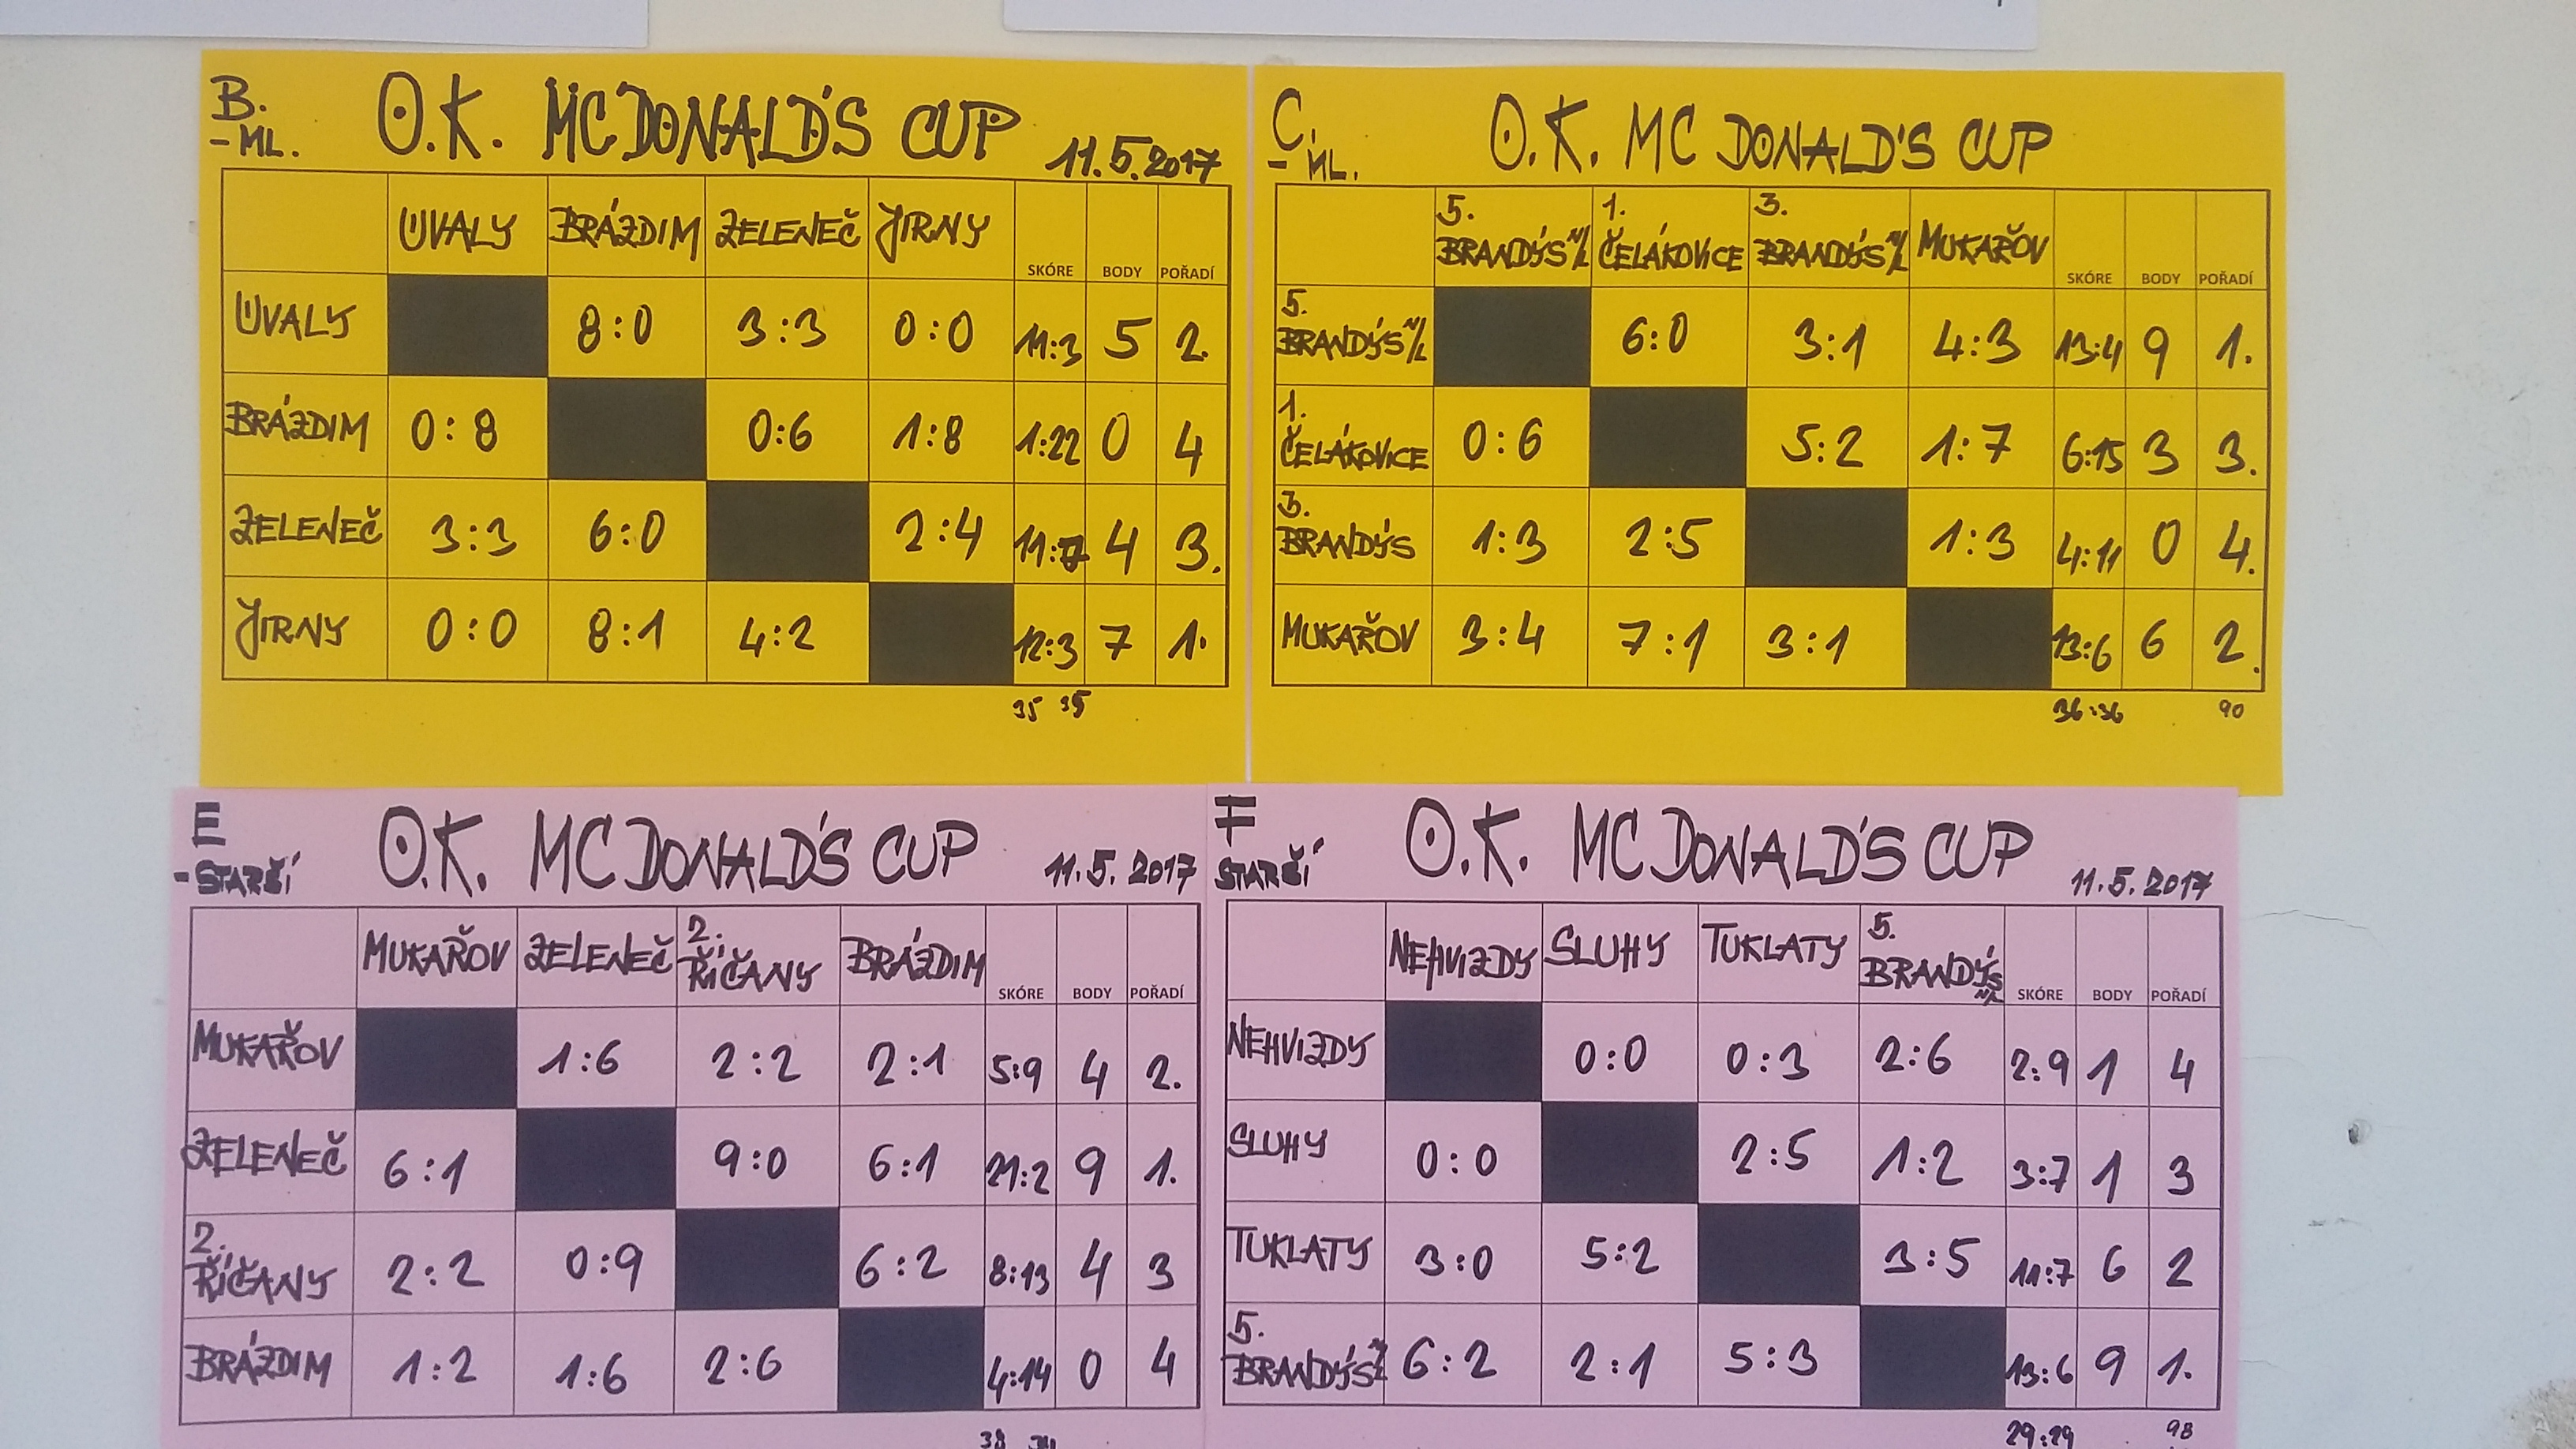 B.
- ML.
O.K. MC DONALD'S CUP
11.5.2017
ÚVALY BRÁZDIM ZELENEČ JIRNY SKÓRE BODY POŘADÍ
ÚVALY 8:0 3:3 0:0 11:3 5 2.
BRÁZDIM 0:8 0:6 1:8 1:22 0 4
ZELENEČ 3:3 6:0 2:4 11:7 4 3.
JIRNY 0:0 8:1 4:2 12:3 7 1.
35 35
C.
- ML.
O.K. MC DONALD'S CUP
5. BRANDÝS N/L 1. ČELÁKOVICE 3. BRANDÝS N/L MUKAŘOV SKÓRE BODY POŘADÍ
5. BRANDÝS N/L 6:0 3:1 4:3 13:4 9 1.
1. ČELÁKOVICE 0:6 5:2 1:7 6:15 3 3.
3. BRANDÝS 1:3 2:5 1:3 4:11 0 4.
MUKAŘOV 3:4 7:1 3:1 13:6 6 2.
36:36 90
E
- STARŠÍ
O.K. MC DONALD'S CUP
11.5.2017
MUKAŘOV ZELENEČ 2. ŘÍČANY BRÁZDIM SKÓRE BODY POŘADÍ
MUKAŘOV 1:6 2:2 2:1 5:9 4 2.
ZELENEČ 6:1 9:0 6:1 21:2 9 1.
2. ŘÍČANY 2:2 0:9 6:2 8:13 4 3
BRÁZDIM 1:2 1:6 2:6 4:14 0 4
38
F
STARŠÍ
O.K. MC DONALD'S CUP
11.5.2017
NEHVIZDY SLUHY TUKLATY 5. BRANDÝS N/L SKÓRE BODY POŘADÍ
NEHVIZDY 0:0 0:3 2:6 2:9 1 4
SLUHY 0:0 2:5 1:2 3:7 1 3
TUKLATY 3:0 5:2 3:5 11:7 6 2
5. BRANDÝS N/L 6:2 2:1 5:3 13:6 9 1.
29:29 98